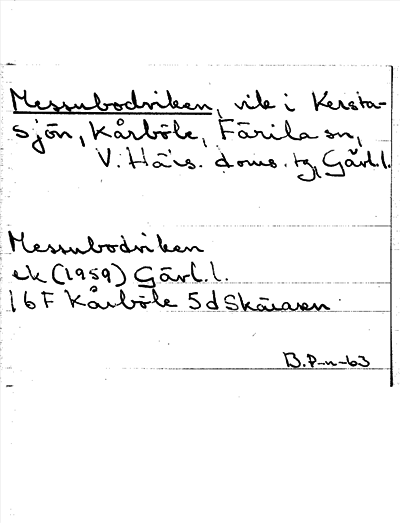 Messubodviken, vik i Kersta-
sjön, Kårböle, Färila sn,
V. Häls. doms. tg, Gävl. l.
Messubodviken
ek (1959) Gävl. l.
16F Kårböle 5d Skålaren
B.P-n-63